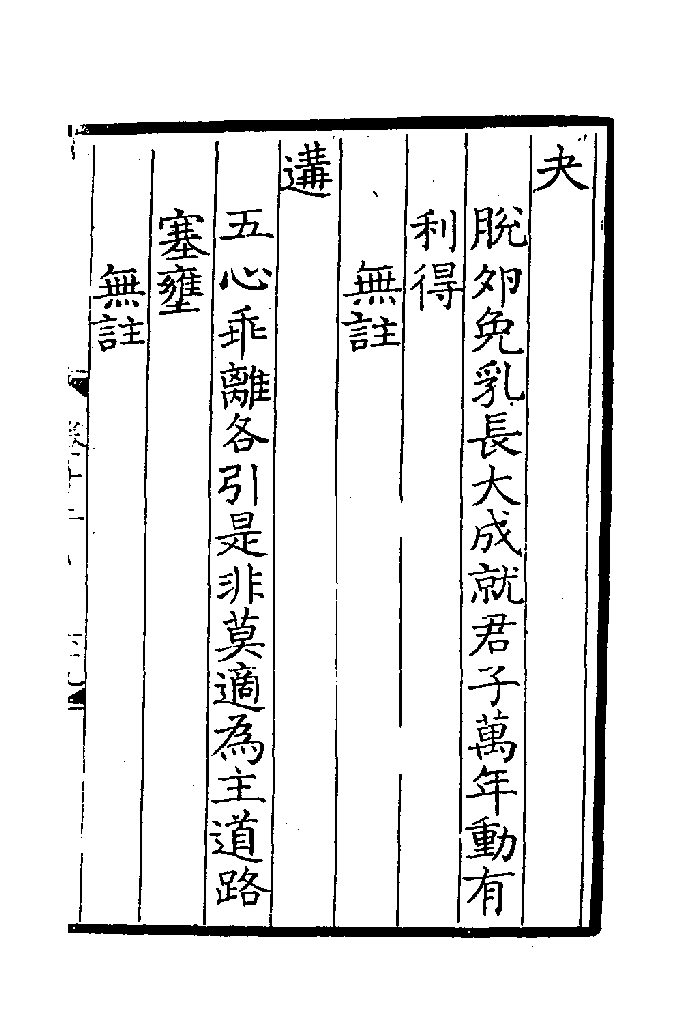 夬
脫夘免乳長大成就君子萬年動有
利得
無註
遘
五心乖離各引是非莫適為主道路
塞壅
無註